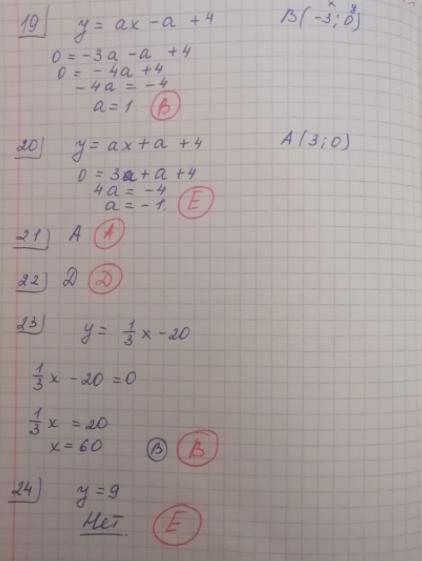 19) y = ax - a + 4 B(-3; 0)
x y
0 = -3a - a + 4
0 = -4a + 4
-4a = -4
a = 1. B
20) y = ax + a + 4 A(3; 0)
0 = 3a + a + 4
4a = -4
a = -1. E
21) A A
22) D D
23) y = 1/3 x - 20
1/3 x - 20 = 0
1/3 x = 20
x = 60 B B
24) y = 9
Нет E